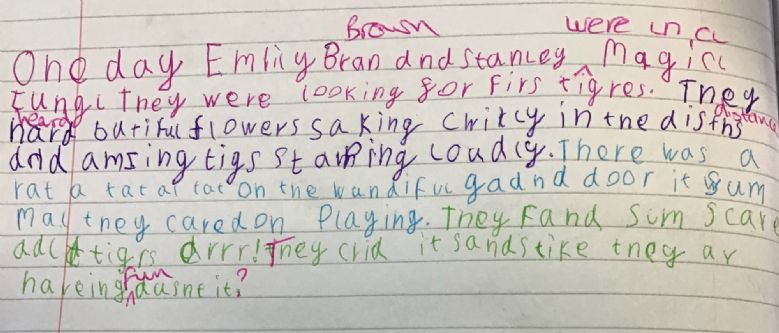 Brown were in a
One day Emliy Bran and Stanley Magicl
Fungl They were looking for firs tigres. They
heard distance
hard butiful flowers saking chilcy in the disths
and amsing tigs stamping loudly. There was a
rat a tat at tat on the wandiful gadnd door it sum
Mal they cared on Playing. They Fand Sum Scare
adlt tigrs arrr! They crid it sands like they ar
fun
haveing dusne it?